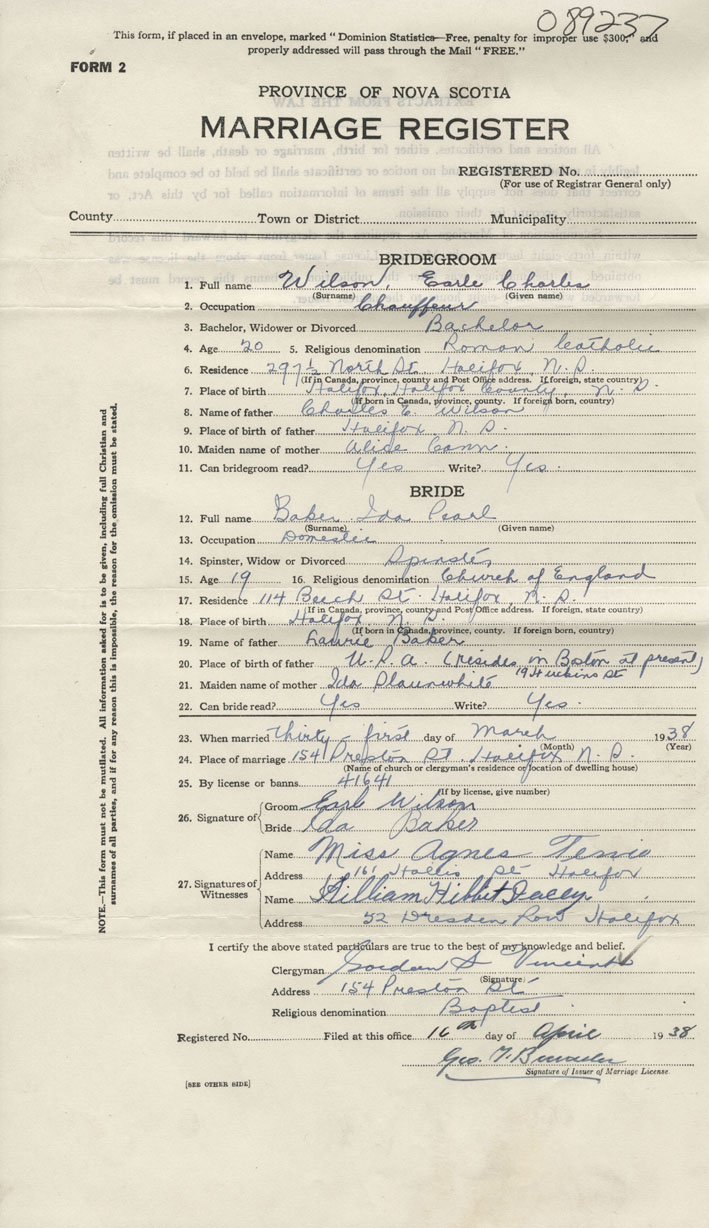 089237
This form, if placed in an envelope, marked "Dominion Statistics—Free, penalty for improper use $300," and
properly addressed will pass through the Mail "FREE."
FORM 2
PROVINCE OF NOVA SCOTIA
MARRIAGE REGISTER
REGISTERED No.
(For use of Registrar General only)
County Town or District Municipality
BRIDEGROOM
1. Full name Wilson, Earle Charles
(Surname) (Given name)
2. Occupation Chauffeur
3. Bachelor, Widower or Divorced Bachelor
4. Age 20 5. Religious denomination Roman Catholic
6. Residence 297½ North St. Halifax N.S.
(If in Canada, province, county and Post Office address. If foreign, state country)
7. Place of birth Halifax, Halifax County, N.S.
(If born in Canada, province, county. If foreign born, country)
8. Name of father Charles E. Wilson
9. Place of birth of father Halifax N.S.
10. Maiden name of mother Alide Cann
11. Can bridegroom read? Yes Write? Yes.
BRIDE
12. Full name Baker Ida Pearl
(Surname) (Given name)
13. Occupation Domestic
14. Spinster, Widow or Divorced Spinster
15. Age 19 16. Religious denomination Church of England
17. Residence 114 Beech St. Halifax, N.S.
(If in Canada, province, county and Post Office address. If foreign, state country)
18. Place of birth Halifax, N.S.
(If born in Canada, province, county. If foreign born, country)
19. Name of father Laurie Baker
20. Place of birth of father U.S.A. (resides in Boston at present)
21. Maiden name of mother Ida Slaunwhite 19 St
22. Can bride read? Yes Write? Yes.
23. When married thirty-first day of March 1938
(Month) (Year)
24. Place of marriage 154 Preston St., Halifax N.S.
(Name of church or clergyman's residence or location of dwelling house)
25. By license or banns 41641
(If by license, give number)
26. Signature of Groom Earle Wilson
Bride Ida Baker
27. Signatures of Witnesses Name Miss Agnes
Address 161 Hollis St Halifax
Name William
Address 52 Dresden Row Halifax
I certify the above stated particulars are true to the best of my knowledge and belief.
Clergyman Gordon S Vincent
(Signature)
Address 154 Preston St
Religious denomination Baptist
Registered No. Filed at this office 16th day of April 1938
Geo.
Signature of Issuer of Marriage License.
[SEE OTHER SIDE]
NOTE.—This form must not be mutilated. All information asked for is to be given, including full Christian and
surnames of all parties, and if for any reason this is impossible, the reason for the omission must be stated.